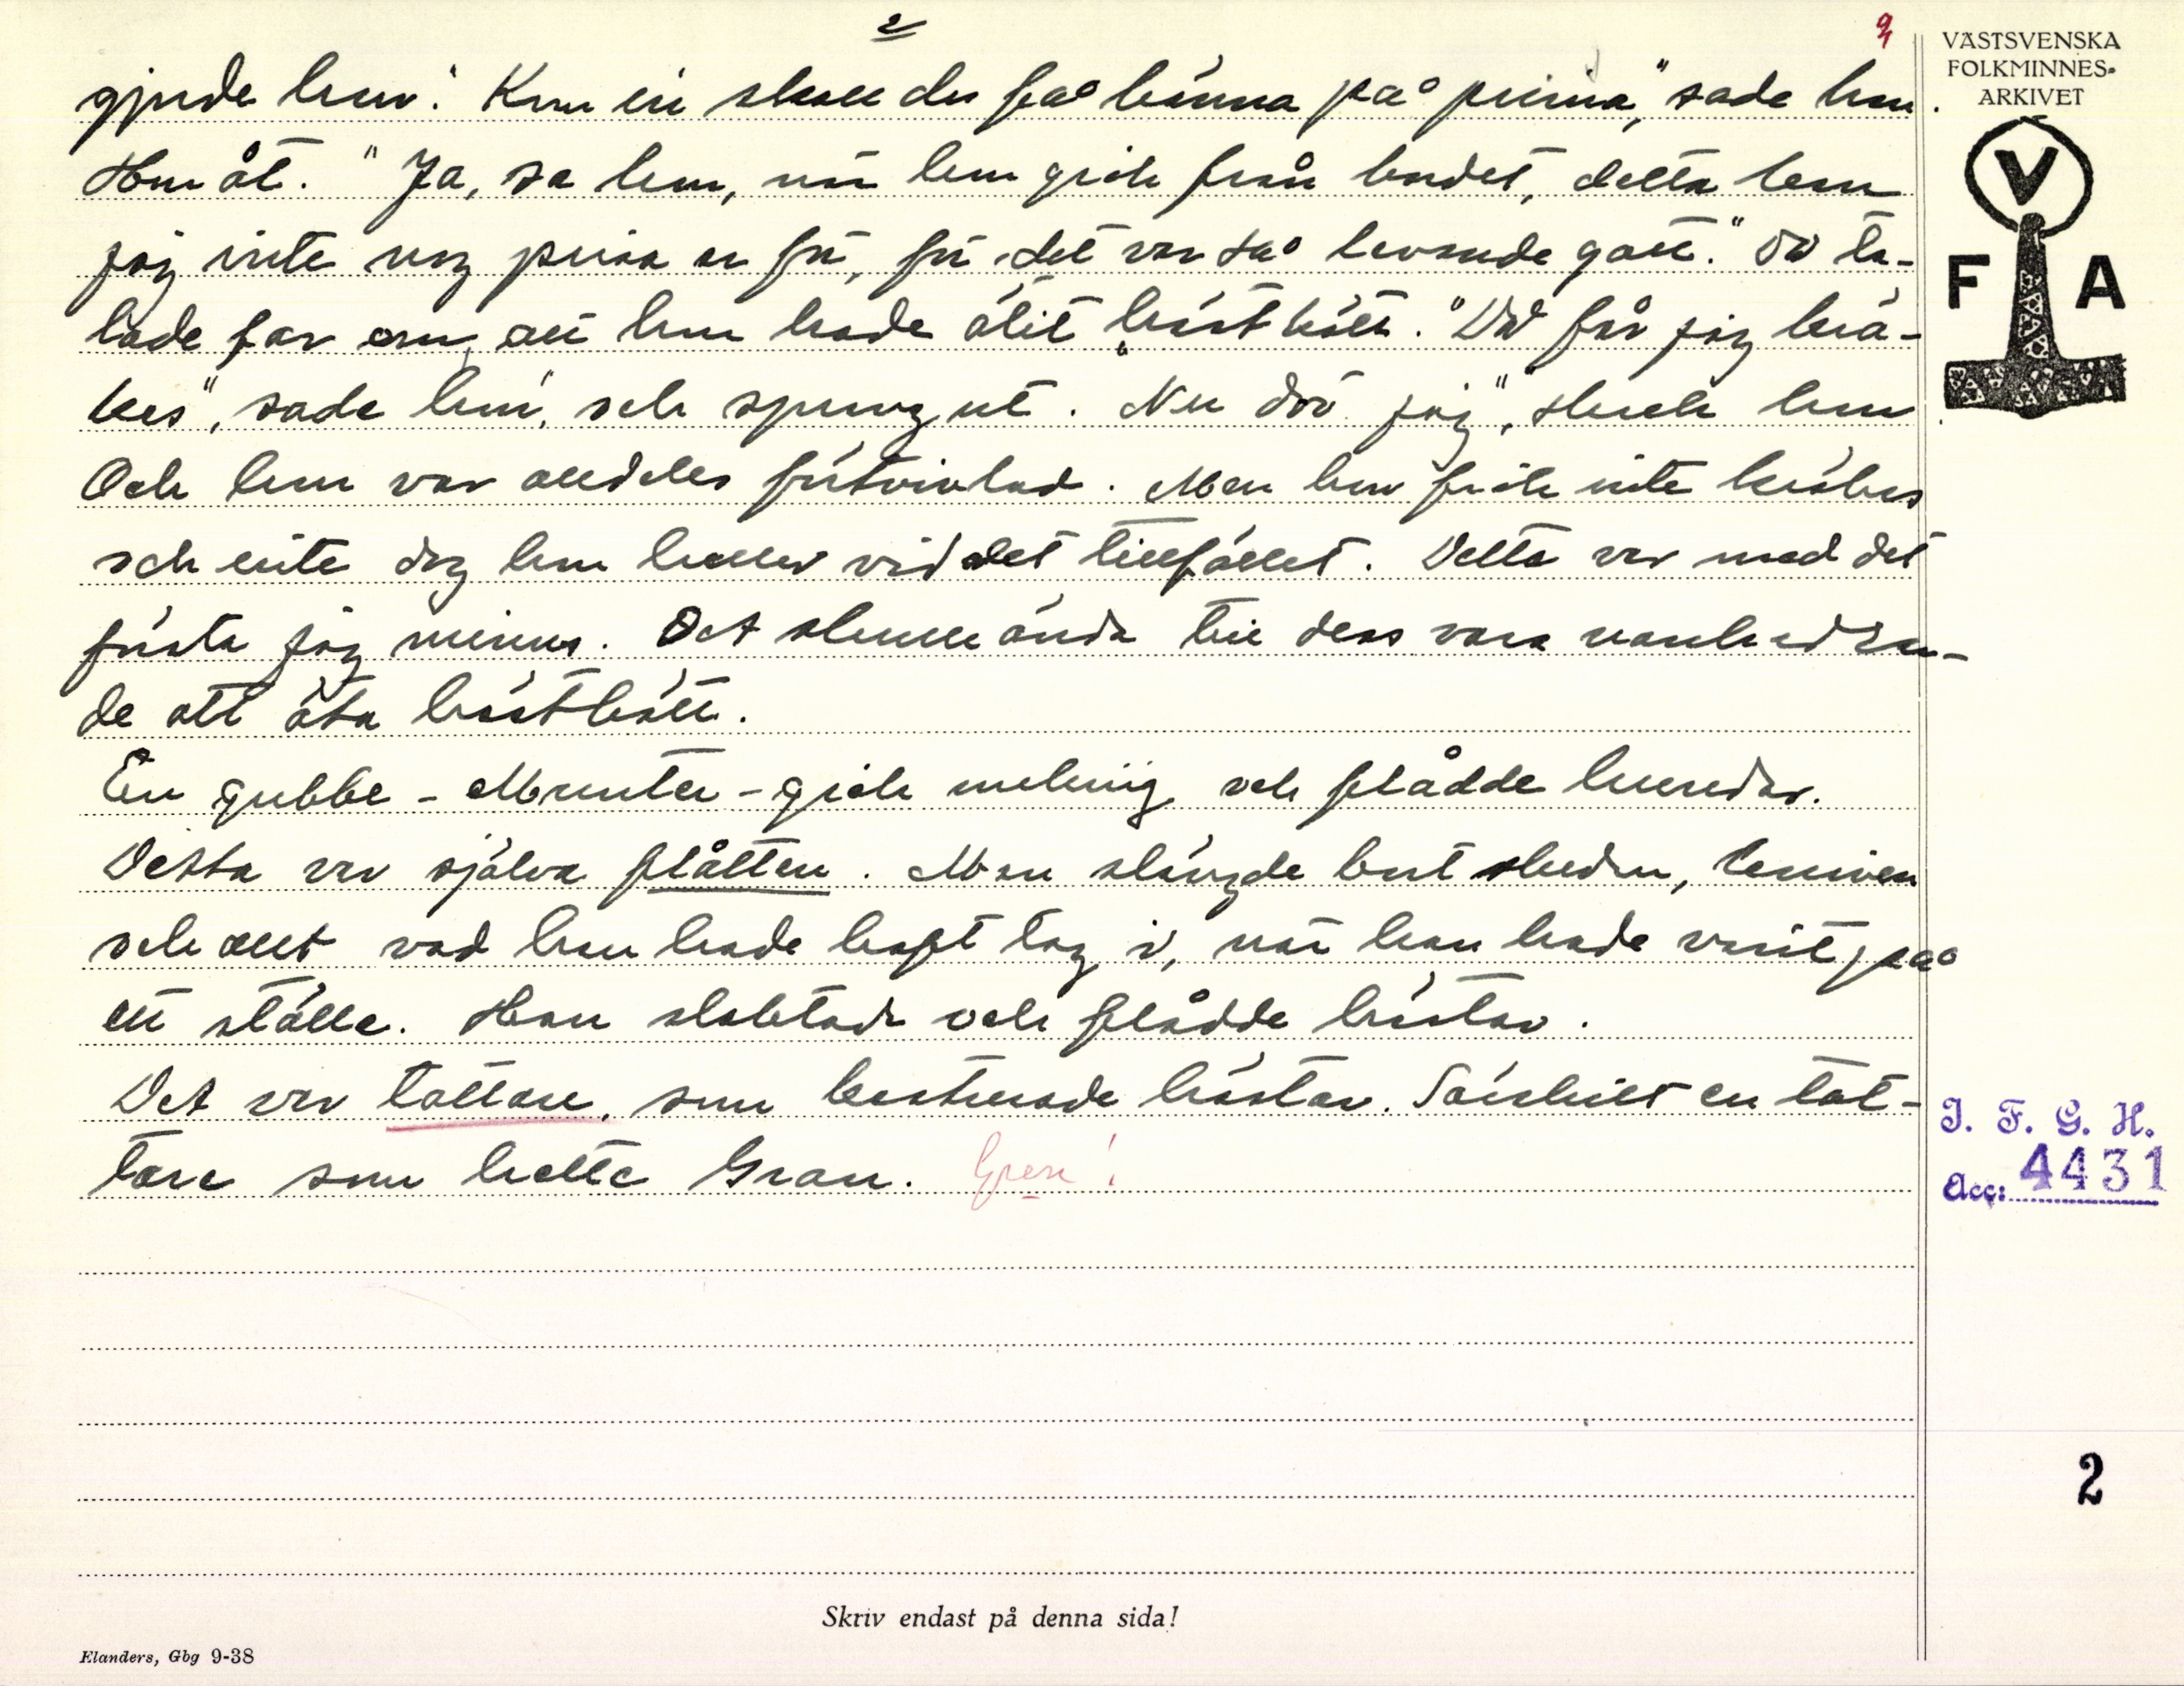 2
VÄSTSVENSKA
FOLKMINNES-
ARKIVET
V
F A
gjorde han. "Kom in skall du få känna på prima", sade han.
Han åt. "Ja, sa han, när han gick från bordet, detta kan
jag inte nog prisa er för, för det var så levande gott." Då ta-
lade far om, att han hade ätit hästkött. "Då får jag krä-
kes", sade han, och sprang ut. "Nu dör jag", skrek han
Och han var alldeles förtvivlad. Men han fick inte kräkas
och inte dog han heller vid det tillfället. Detta var med det
första jag minns. Det skulle ända till dess vara vanhedran-
de att äta hästkött.
En gubbe - Munter - gick omkring och flådde hundar.
Detta var själva flåtten. Man slängde bort skeden, kniven
och allt vad han hade haft tag i, när han hade varit på
ett ställe. Han slaktade och flådde hästar.
Det var tattare, som kastrerade hästar. Särskilt en tat-
tare som hette Gran. Gren!
I. F. G. H.
Acc: 4431
2
Skriv endast på denna sida!
Elanders, Gbg 9-38